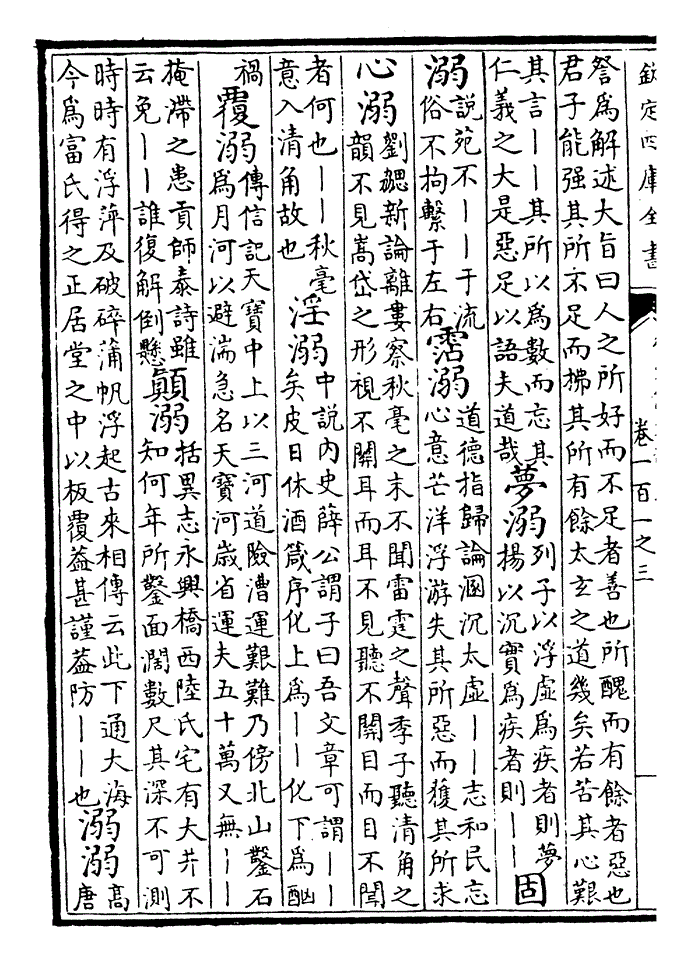 欽定四庫全書
卷一百一之三
詧為解述大旨曰人之所好而不足者善也所醜而有餘者惡也
君子能强其所不足而拂其所有餘太玄之道幾矣若苦其心艱
其言——其所以為數而忘其
仁義之大是惡足以語夫道哉
夢溺
列子以浮虛為疾者則夢
揚以沉實為疾者則——
固
溺
說苑不——于流
俗不拘繫于左右
霑溺
道德指歸論溷沉太虛——志和民忘
心意芒洋浮游失其所惡而獲其所求
心溺
劉勰新論離婁察秋毫之末不聞雷霆之聲季子聽清角之
韻不見嵩岱之形視不關耳而耳不見聽不關目而目不聞
者何也——秋毫
意入清角故也
淫溺
中說內史薛公謂子曰吾文章可謂——
矣皮日休酒箴序化上為——化下為酗
禍
覆溺
傳信記天寶中上以三河道險漕運艱難乃傍北山鑿石
為月河以避湍急名天寶河歲省運夫五十萬又無——
掩滯之患貢師泰詩雖
云免——誰復解倒懸
顛溺
括異志永興橋西陸氏宅有大井不
知何年所鑿面濶數尺其深不可測
時時有浮萍及破碎蒲帆浮起古來相傳云此下通大海
今為富氏得之正居堂之中以板覆葢甚謹葢防——也
溺溺
高
唐